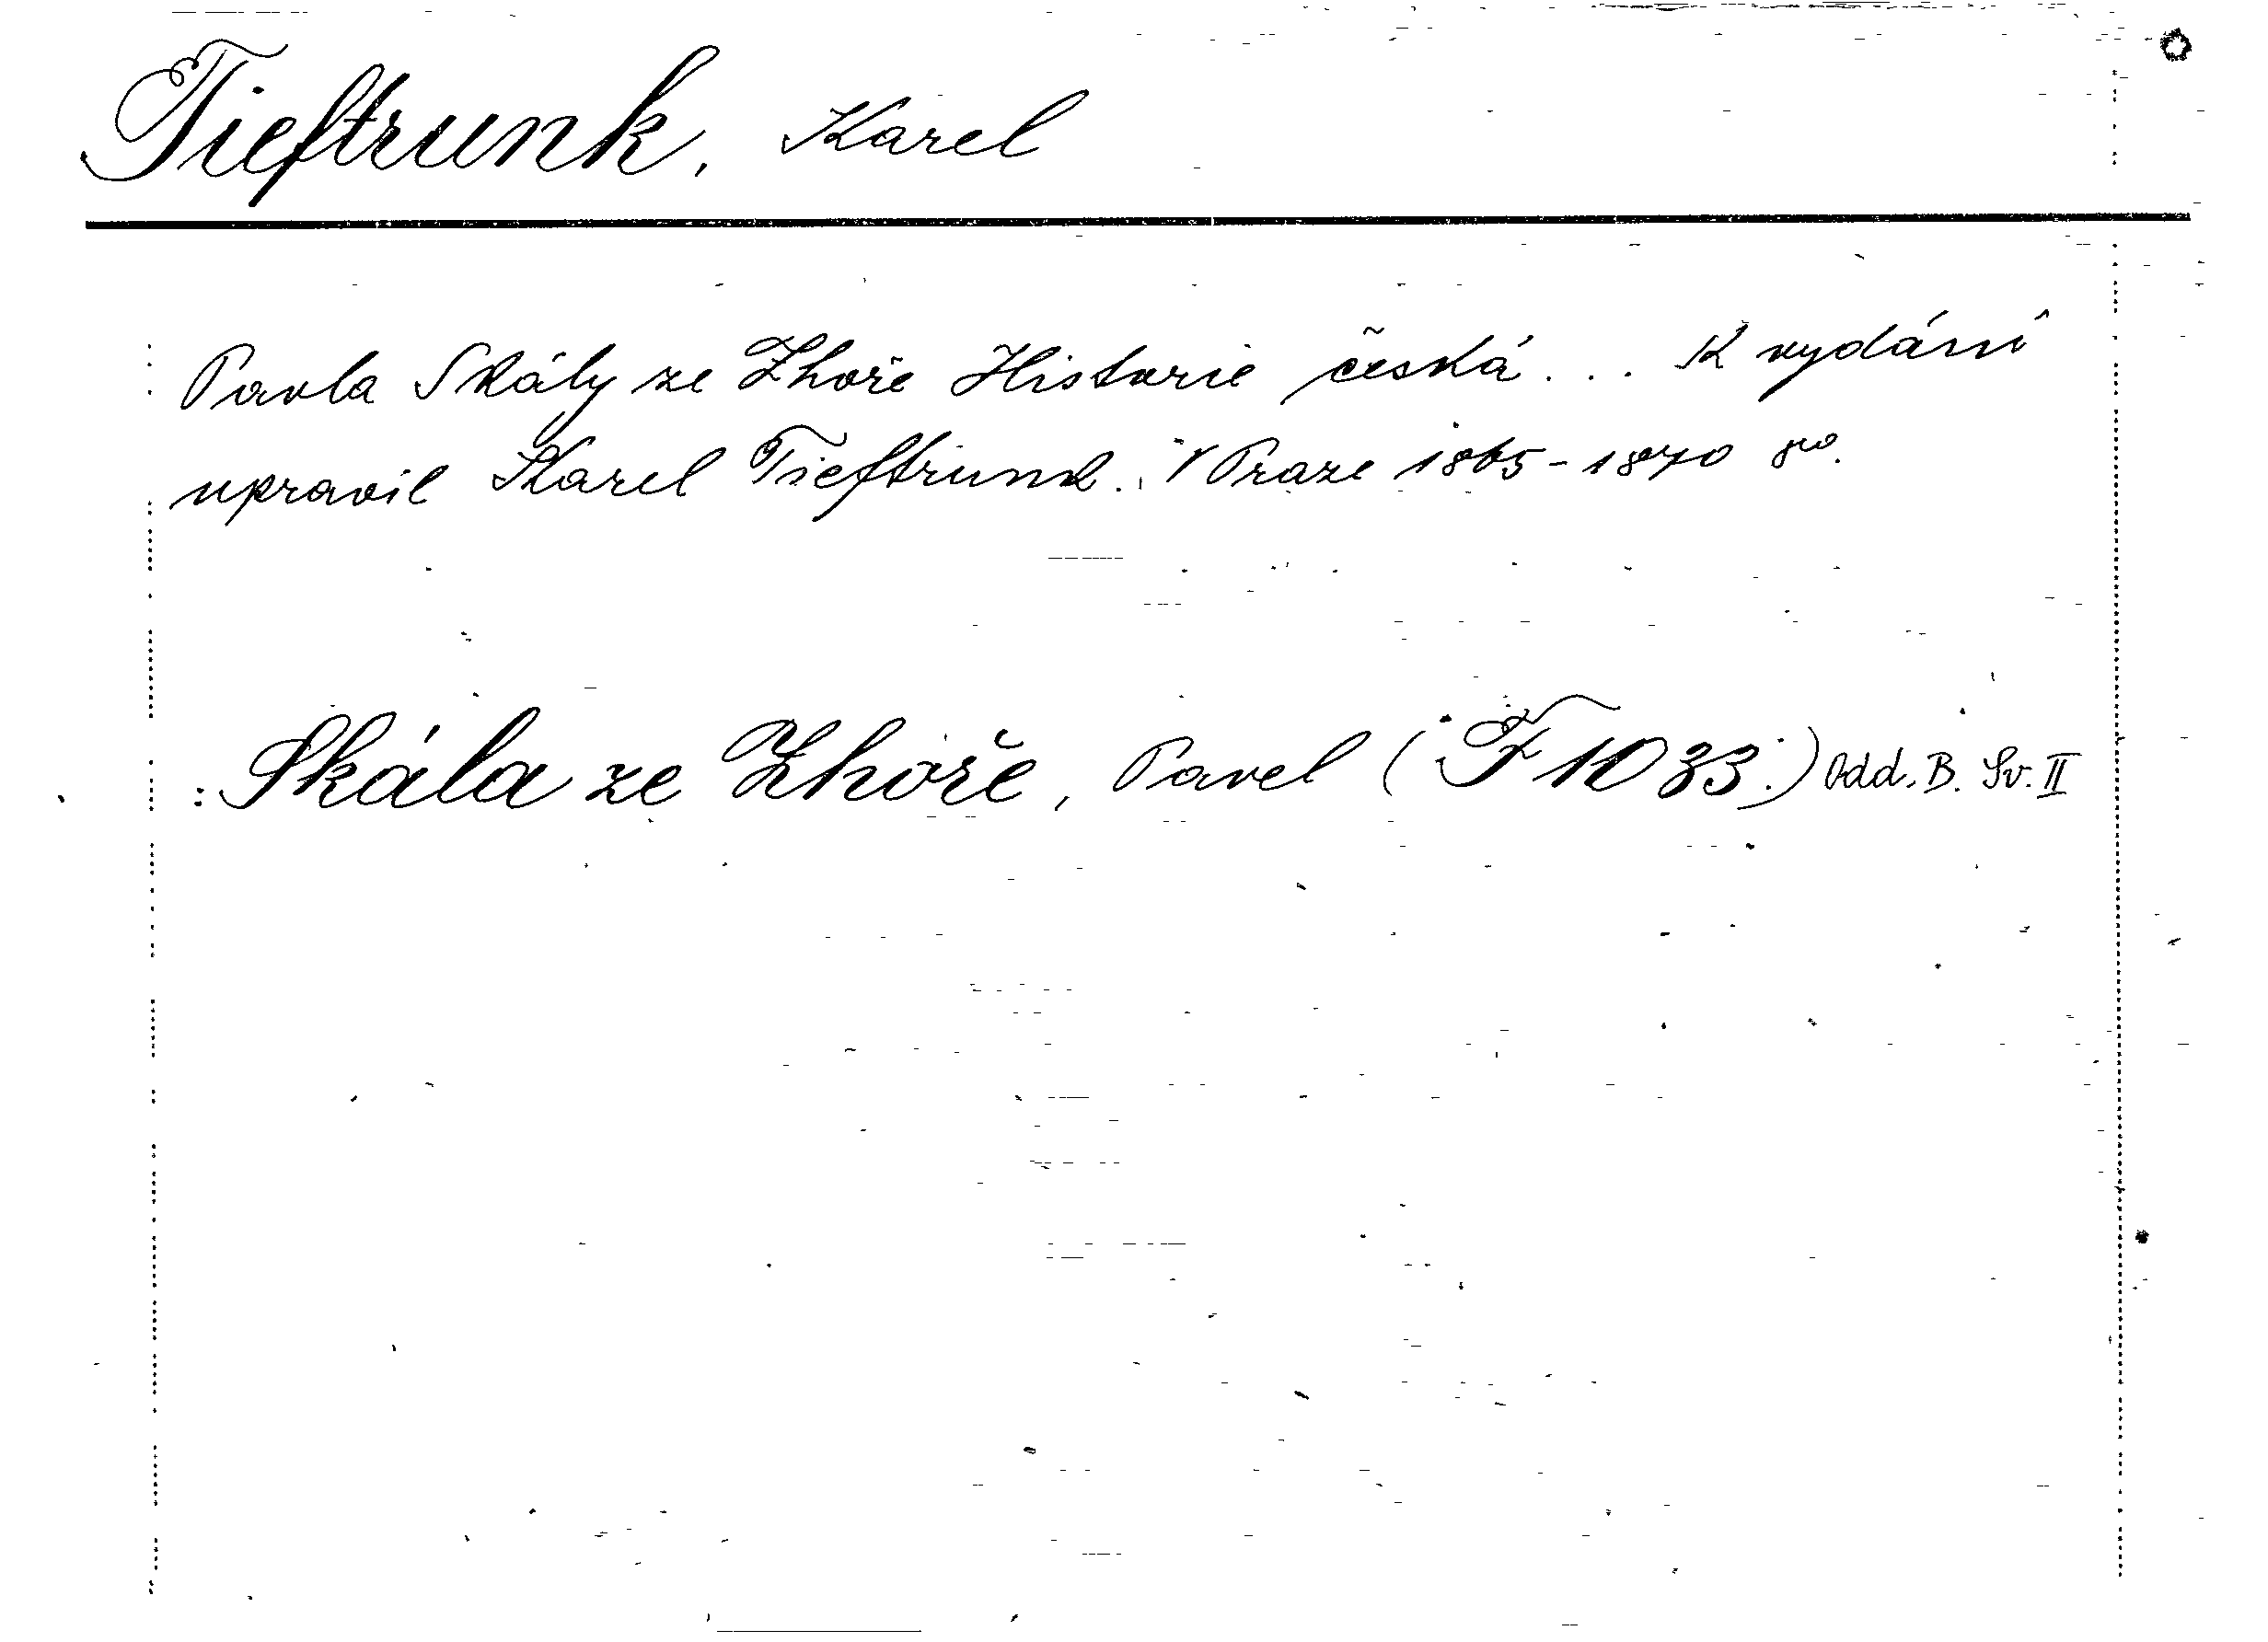 Tieftrunk, Karel
Pavla Skály ze Zhoře Historie česká... K vydání
upravil Karel Tieftrunk. V Praze 1865-1870 8vo.
: Skála ze Zhoře, Pavel (F 1033.) Odd. B. Sv. II